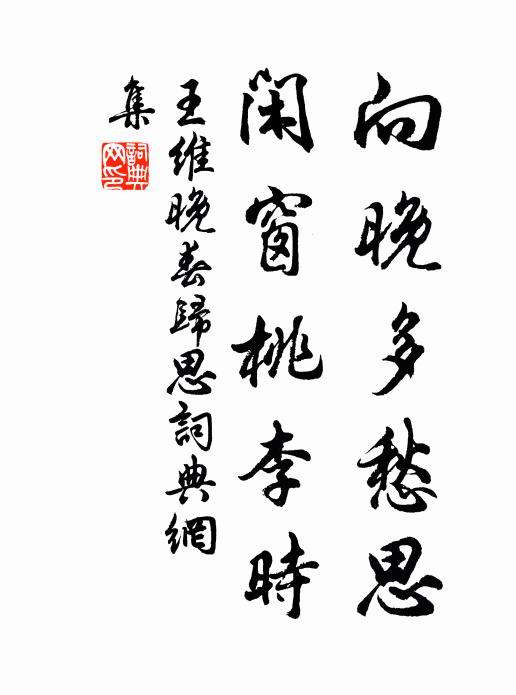 向晚多愁思
閑窗桃李時
王維晚春歸思詞典網
集
詞典
网印